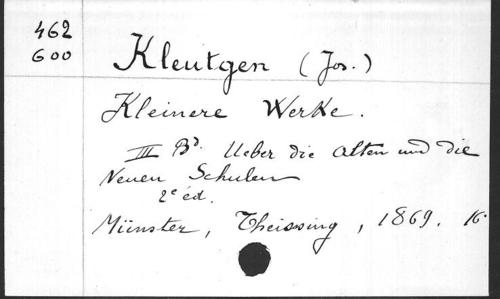 462
600
Kleutgen (Jos.)
Kleinere Werke.
III Bd. Ueber die alten und die
Neuen Schulen
2e éd.
Münster, Theissing, 1869. 16°